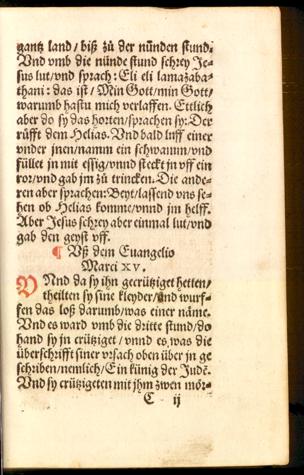 gantz land / biß zů der nünden stund.
Vnd vmb die nünde stund schrey Je-
sus lut / vnd sprach : Eli eli lamazaba-
thani : das ist / Min Gott / min Gott /
warumb hastu mich verlassen. Ettlich
aber do sy das horten / sprachen sy: Der
růfft dem Helias. Vnd bald luff einer
vnder jnen / namm ein schwamm / vnd
füllet jn mit essig / vnnd steckt jn vff ein
ror / vnd gab jm zů trincken. Die ande-
ren aber sprachen: Beyt / lassend vns se-
hen ob Helias komme / vnnd jm helff.
Aber Jesus schrey aber einmal lut / vnd
gab den geyst vff.
¶ Vß dem Euangelio
Marci xv.
VNnd da sy ihn gecrütziget hetten /
theilten sy sine kleyder / vnd wurf-
fen das loß darumb / was einer näme.
Vnd es ward vmb die dritte stund / do
hand sy jn crütziget / vnnd es was die
überschrifft siner vrsach oben über jn ge
schriben / nemlich / Ein künig der Judē.
Vnd sy crützigeten mit jhm zwen mör-
C ij